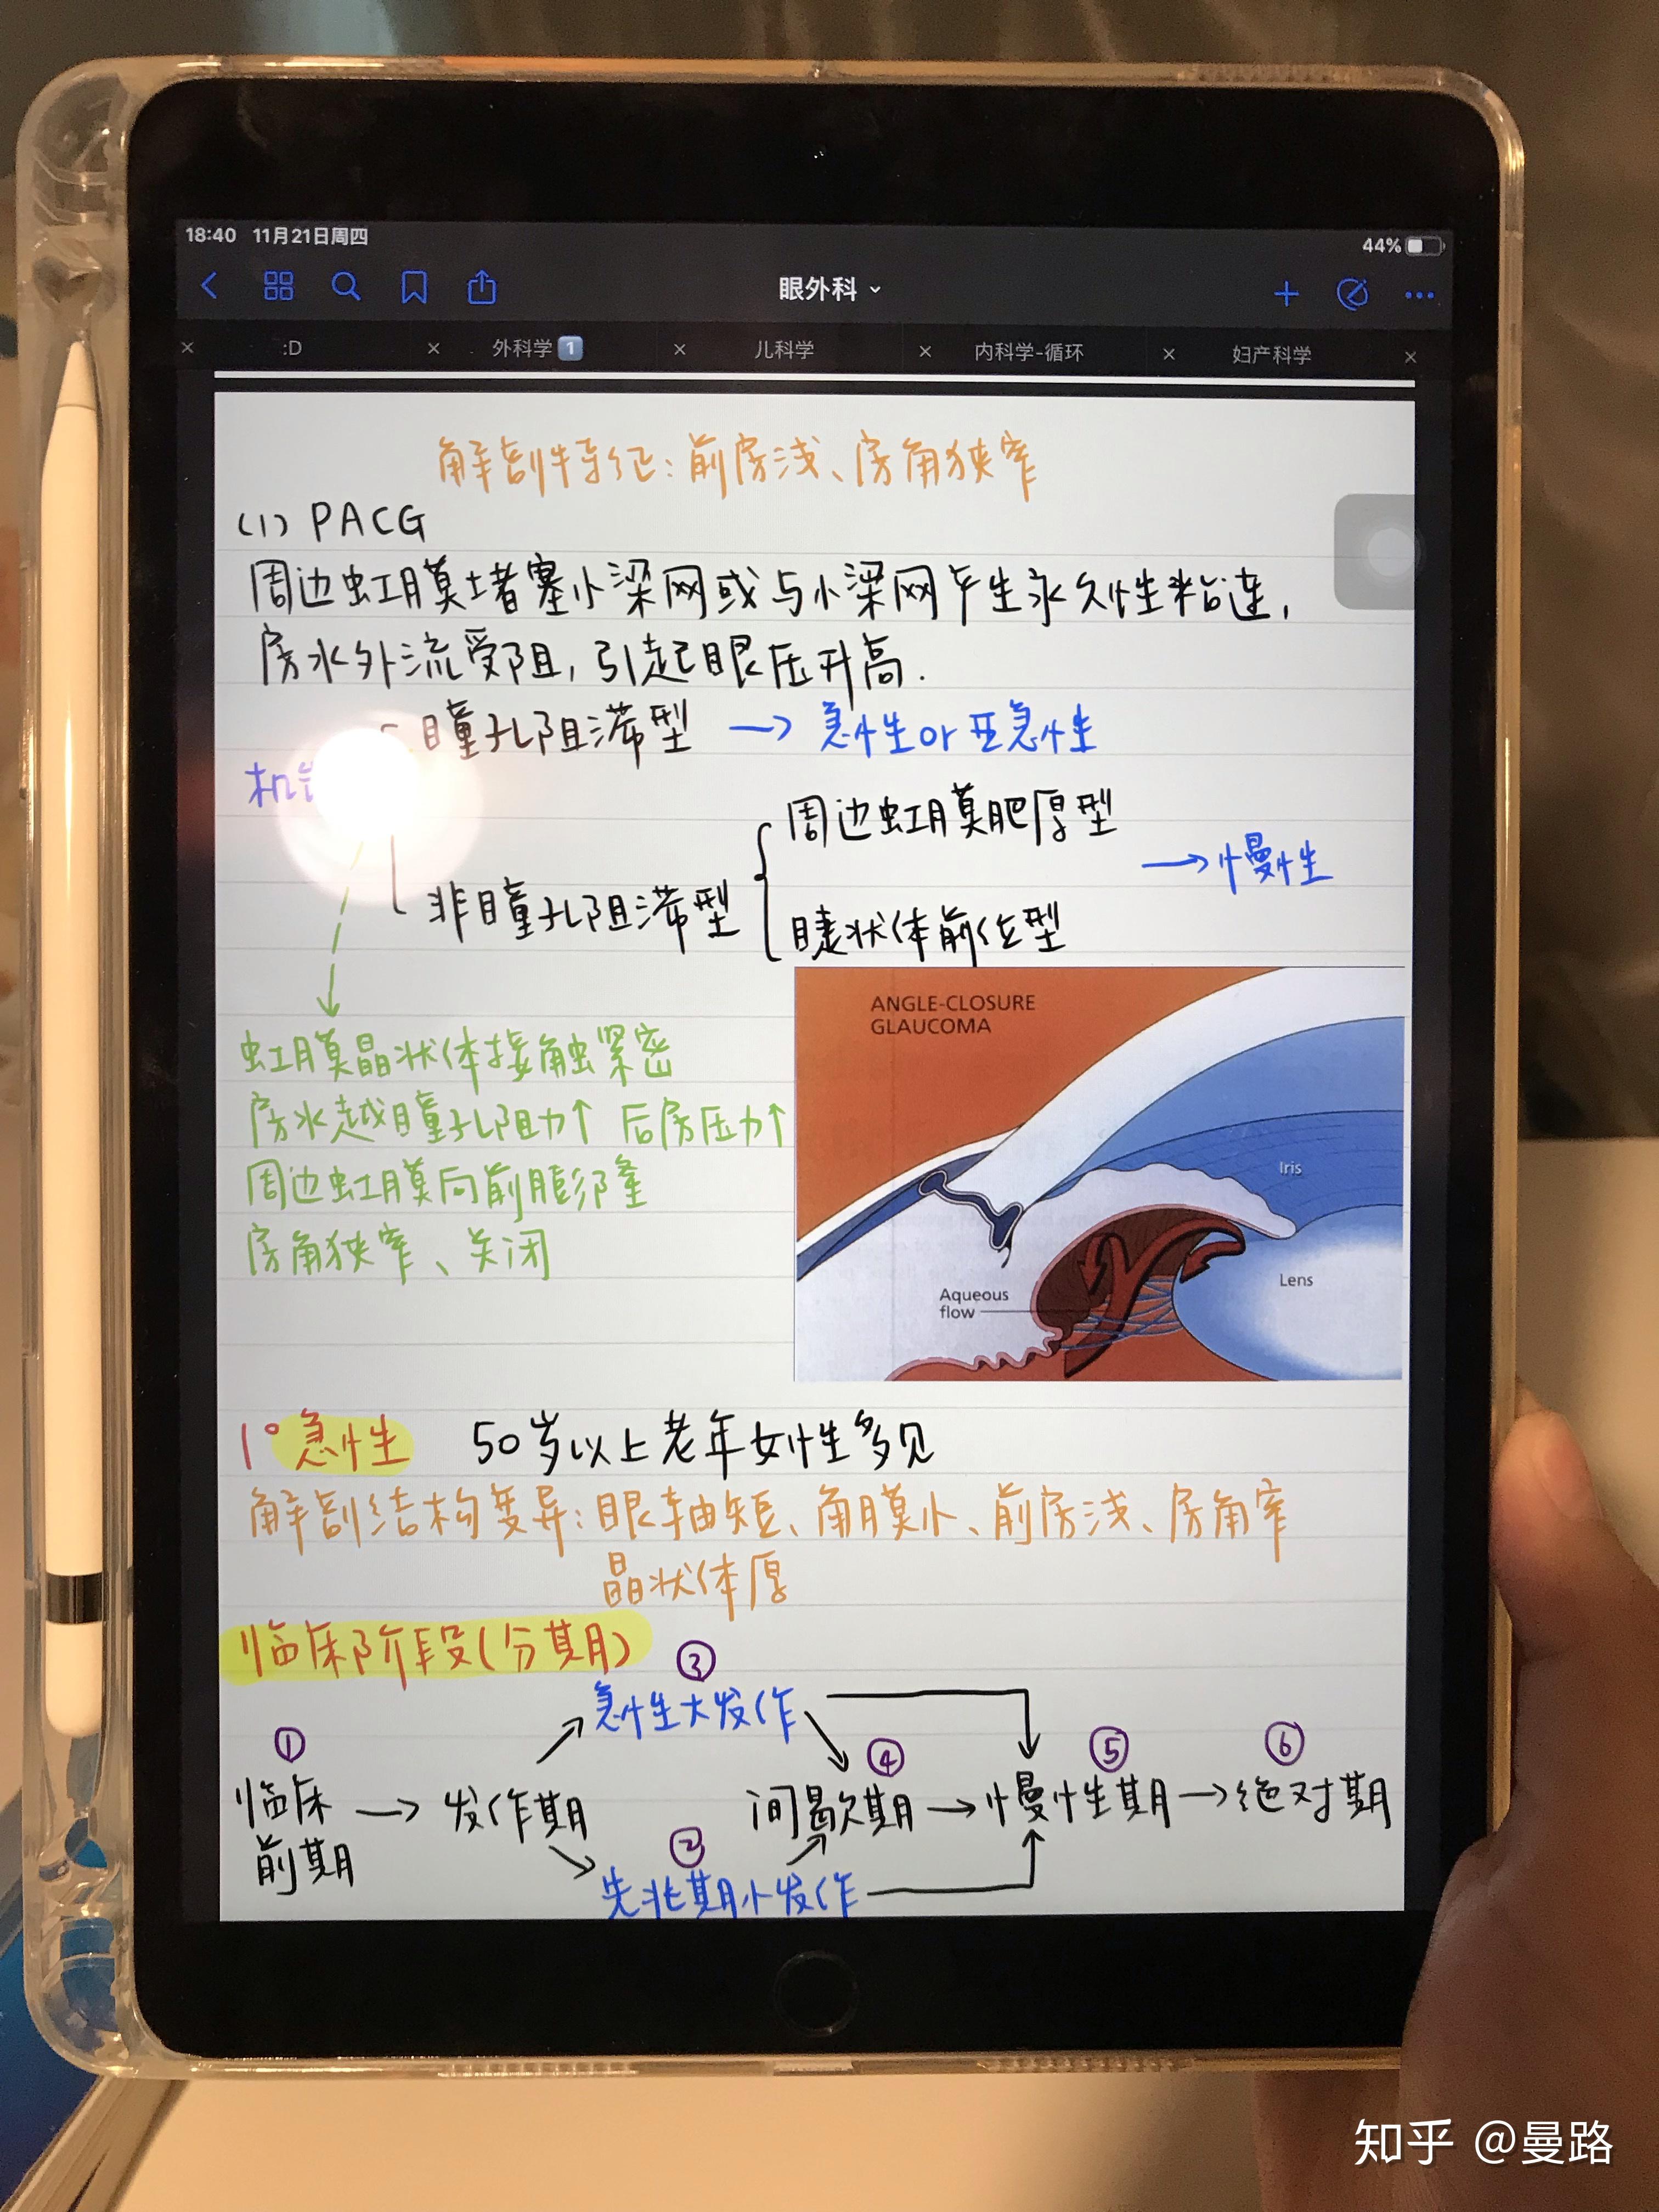 18:40 11月21日周四
44%
眼外科
:D
外科学 1
儿科学
内科学-循环
妇产科学
解剖特征：前房浅、房角狭窄
(1) PACG
周边虹膜堵塞小梁网或与小梁网产生永久性粘连，
房水外流受阻，引起眼压升高.
瞳孔阻滞型 → 急性or亚急性
机
周边虹膜肥厚型
→慢性
非瞳孔阻滞型
睫状体前位型
虹膜晶状体接触紧密
房水越瞳孔阻力↑ 后房压力↑
周边虹膜向前膨隆
房角狭窄、关闭
ANGLE-CLOSURE
GLAUCOMA
Iris
Lens
Aqueous
flow
1° 急性 50岁以上老年女性多见
解剖结构变异：眼轴短、角膜小、前房浅、房角窄
晶状体厚
临床阶段(分期)
③
急性大发作
① ④ ⑤ ⑥
临床 → 发作期 间歇期 → 慢性期 → 绝对期
前期
②
先兆期小发作
知乎 @曼路